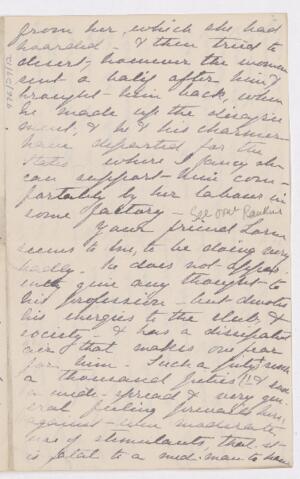 from her, which she had
hoarded - & then tried to
desert, however the woman
sent a baliff after him &
brought him back, when
he made up the disagree
ment, & he & his charmer
have departed for the
States where I fancy she
can support him com-
fortably by her labour in
some factory - See Mr Rankin
Your friend Lorn
seems to me, to be doing very
badly. he does not appar-
ently give any thought to
his profession - but devotes
his energies to the club, &
society - & has a dissipated
air that makes one fear
for him. Such a pity
a thousand pities!! &
a wide-spread & very gen-
eral feeling prevails here,
against the moderate
use of stimulants, that it
is fatal to a med: man to have
976/29/12